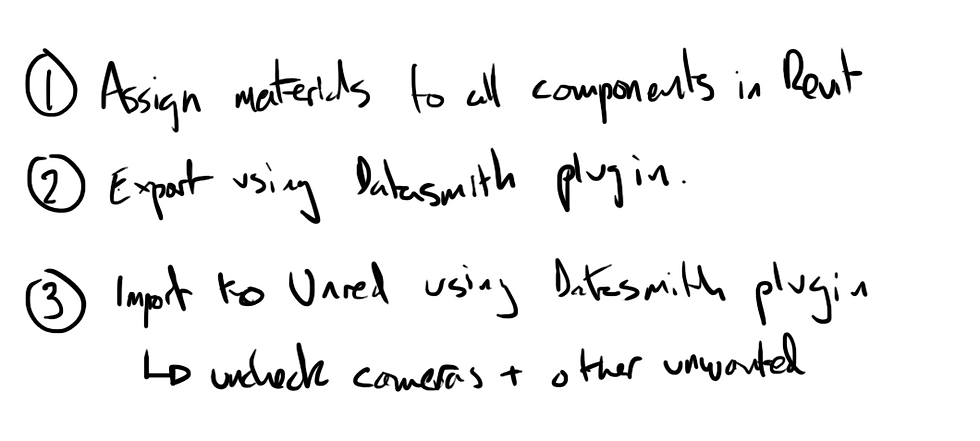 ① Assign materials to all components in Revit
② Export using Datasmith plugin.
③ Import to Unreal using Datasmith plugin
↳ uncheck cameras + other unwanted